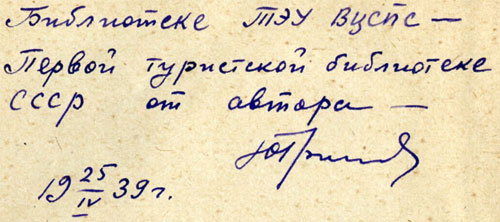 Библиотеке ТЭУ ВЦСПС —
Первой туристской библиотеке
СССР от автора —
19 25/IV 39 г.